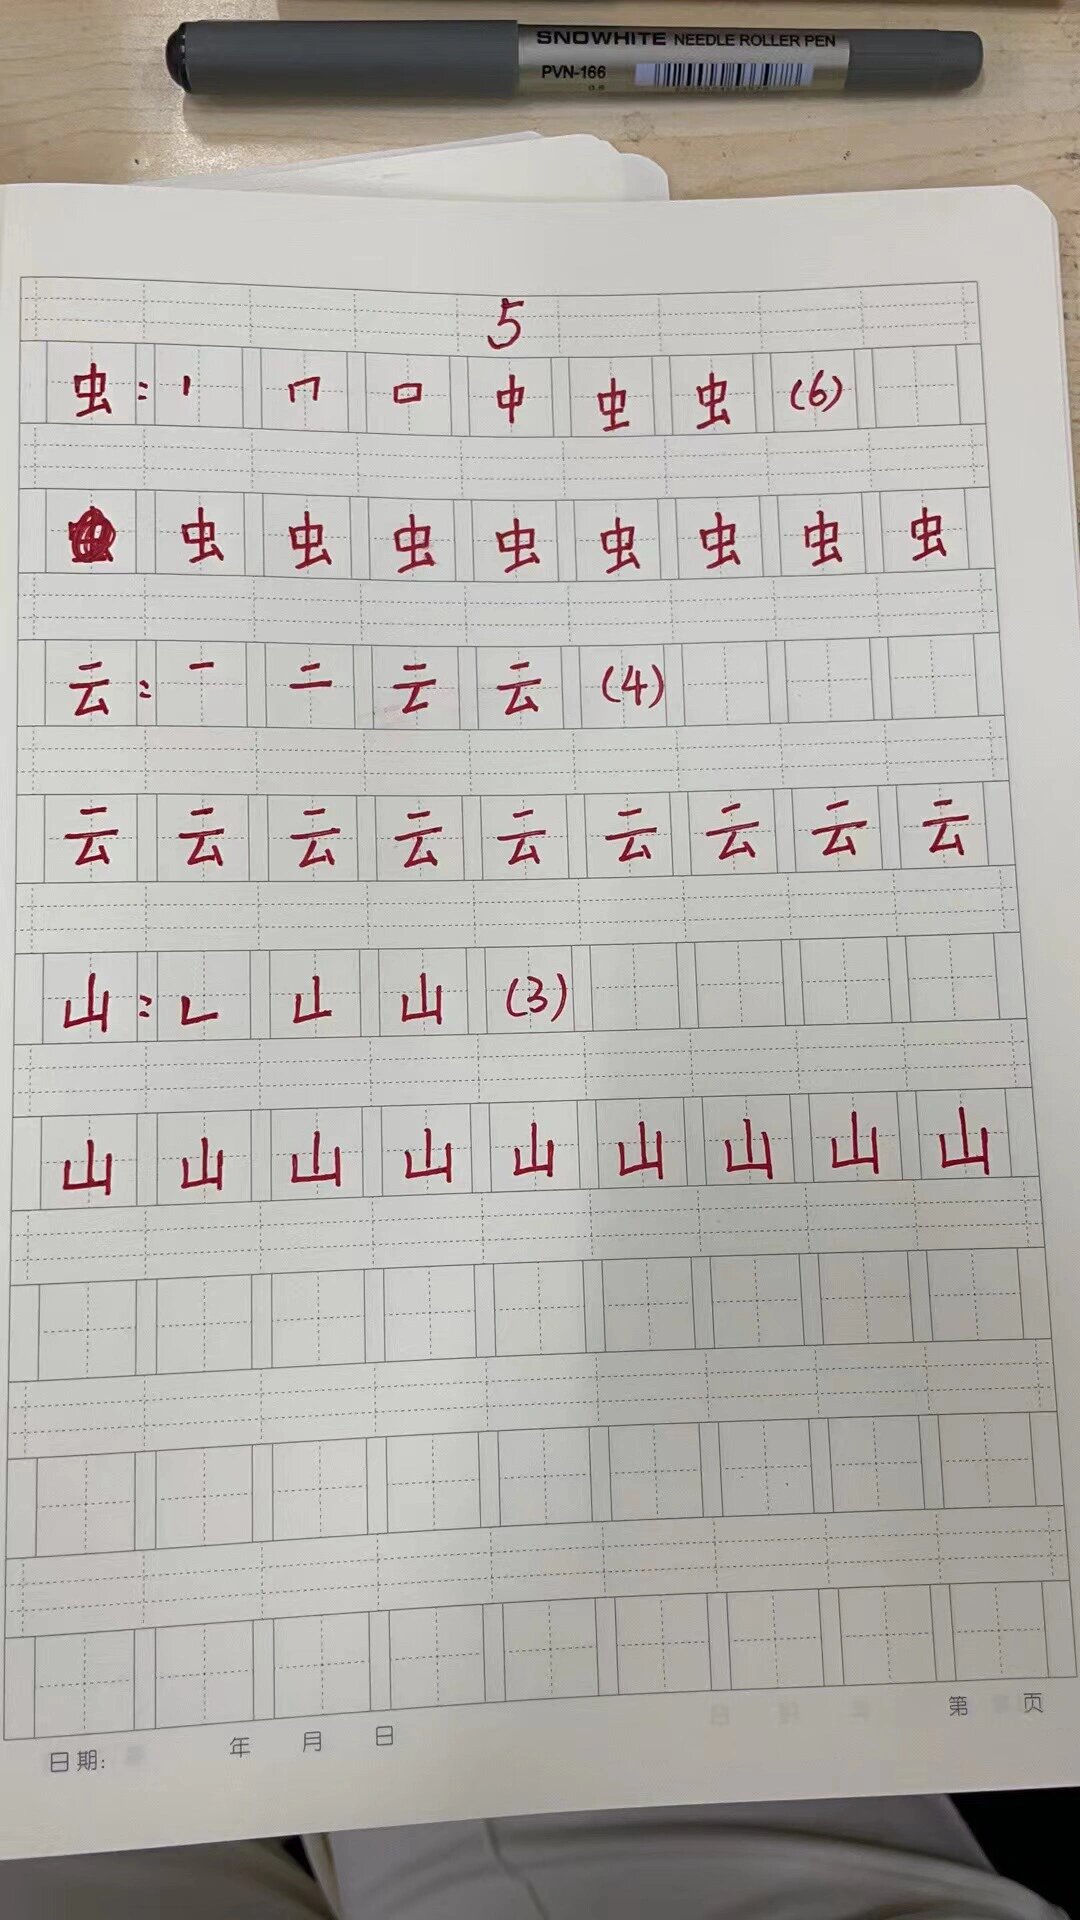 SNOWHITE NEEDLE ROLLER PEN
PVN-166
5
虫: 丨 𠃍 口 中 𠀐 虫 (6)
虫 虫 虫 虫 虫 虫 虫 虫
云: 一 二 云 (4)
云 云 云 云 云 云 云 云 云
山: ㄴ 山 (3)
山 山 山 山 山 山 山 山 山
第 页
日期: 年 月 日